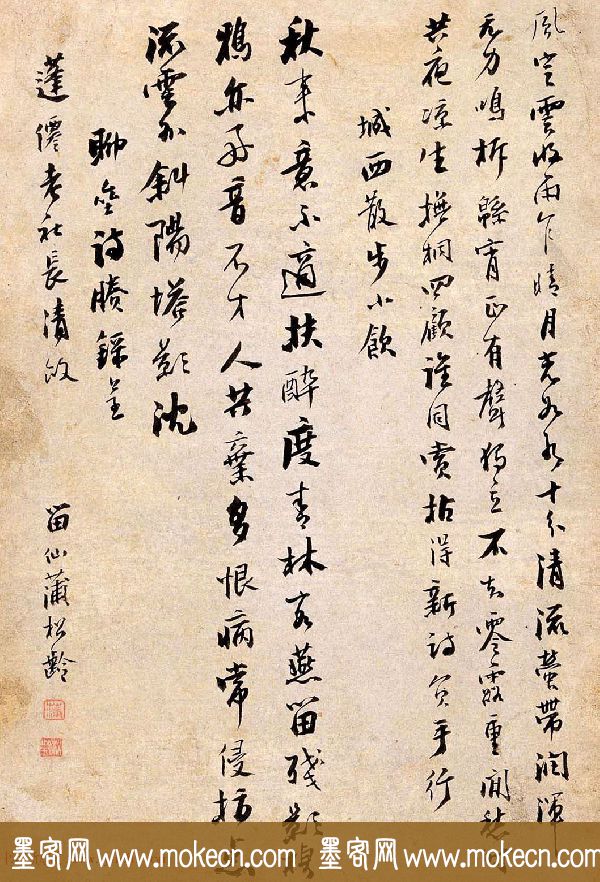 風定雲收雨乍晴月光如水十分清流螢帶潤渾
無力鳴柝終宵正有聲獨立不知零露重閒愁
共夜涼生撫桐四顧誰同賞拈得新詩負手行
城西散步小飲
秋來意不適扶醉度青林客燕留殘影
鴉亦好音不才人共棄多恨病常侵
流雲外斜陽塔影沈
聊齋詩謄錄呈
蓬僊老社長清政
留仙蒲松齡
墨客网 www.mokecn.com 墨客网 www.mokecn.com